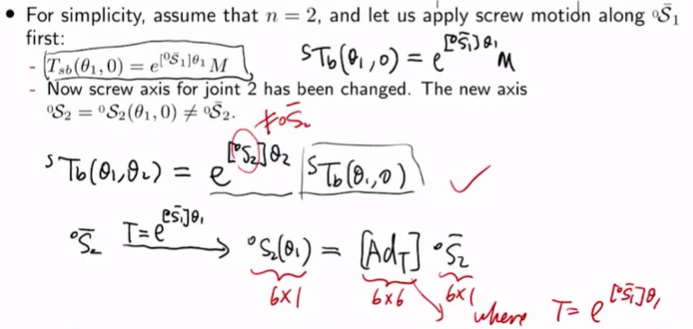 • For simplicity, assume that n = 2, and let us apply screw motion along ⁰S̄₁
first:
- T_sb(θ₁, 0) = e^{[⁰S̄₁]θ₁} M
ˢT_b(θ₁, 0) = e^{[⁰S̄₁]θ₁} M
- Now screw axis for joint 2 has been changed. The new axis
⁰S₂ = ⁰S₂(θ₁, 0) ≠ ⁰S̄₂.
≠ ⁰S̄₂
ˢT_b(θ₁, θ₂) = e^{[⁰S₂]θ₂} ˢT_b(θ₁, 0) ✓
⁰S̄₂ T = e^{[⁰S̄₁]θ₁} → ⁰S₂(θ₁) = [Ad_T] ⁰S̄₂
6×1 6×6 6×1
where T = e^{[⁰S̄₁]θ₁}